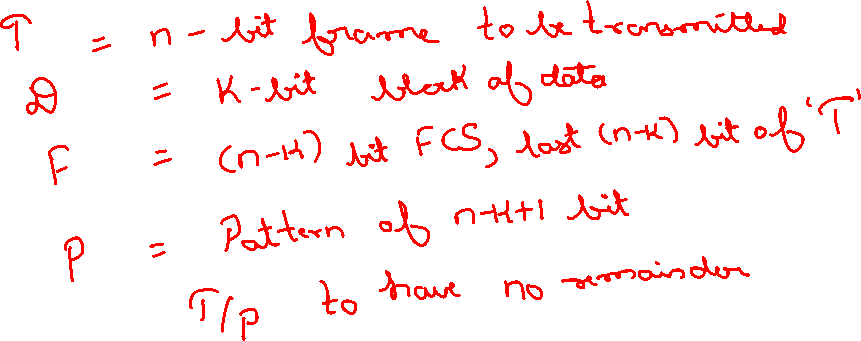 T = n-bit frame to be transmitted
D = K-bit block of data
F = (n-K) bit FCS, last (n-K) bit of 'T'
P = Pattern of n-K+1 bit
T/P to have no remainder